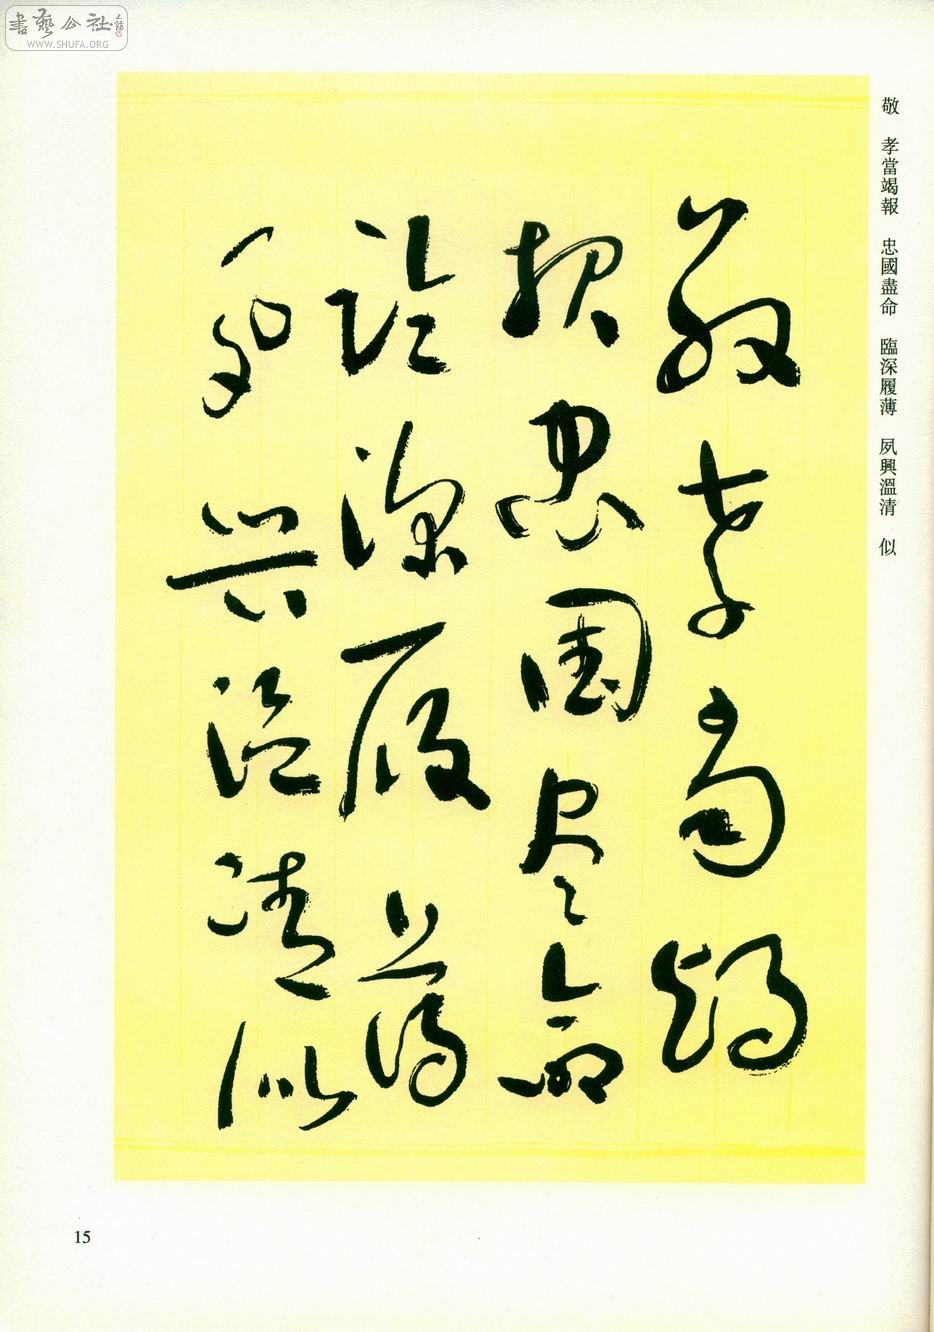 書藝公社
WWW.SHUFA.ORG
敬　孝當竭報　忠國盡命　臨深履薄　夙興溫清　似
敬孝當竭
報忠國盡命
臨深履薄
夙興溫清似
15